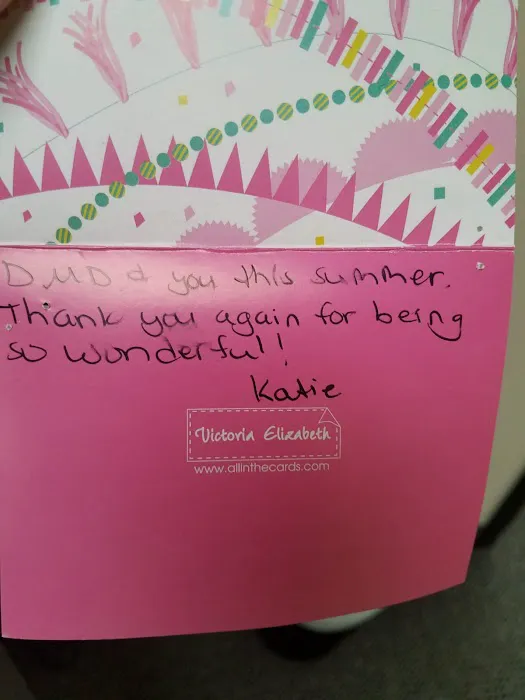 DMD & you this summer.
Thank you again for being
so wonderful!!
Katie
Victoria Elizabeth
www.allinthecards.com